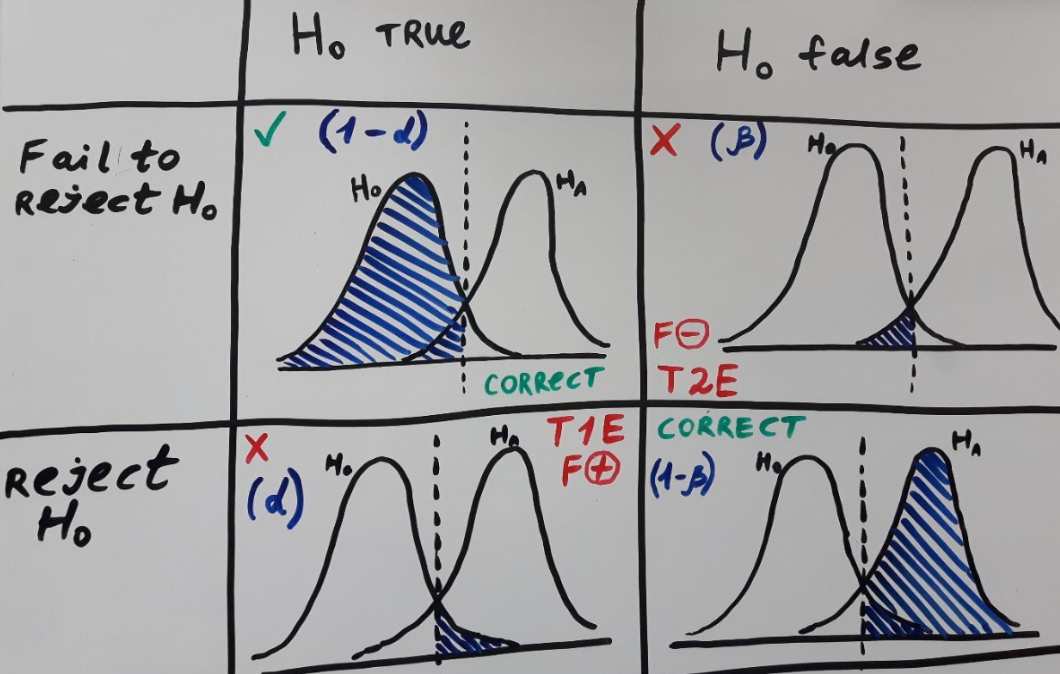 H₀ TRUE
H₀ false
Fail to
Reject H₀
✓ (1-α)
H₀
H_A
CORRECT
X (β)
H₀
H_A
F⊖
T2E
Reject
H₀
X
(α)
H₀
H_A
T1E
F⊕
CORRECT
(1-β)
H₀
H_A